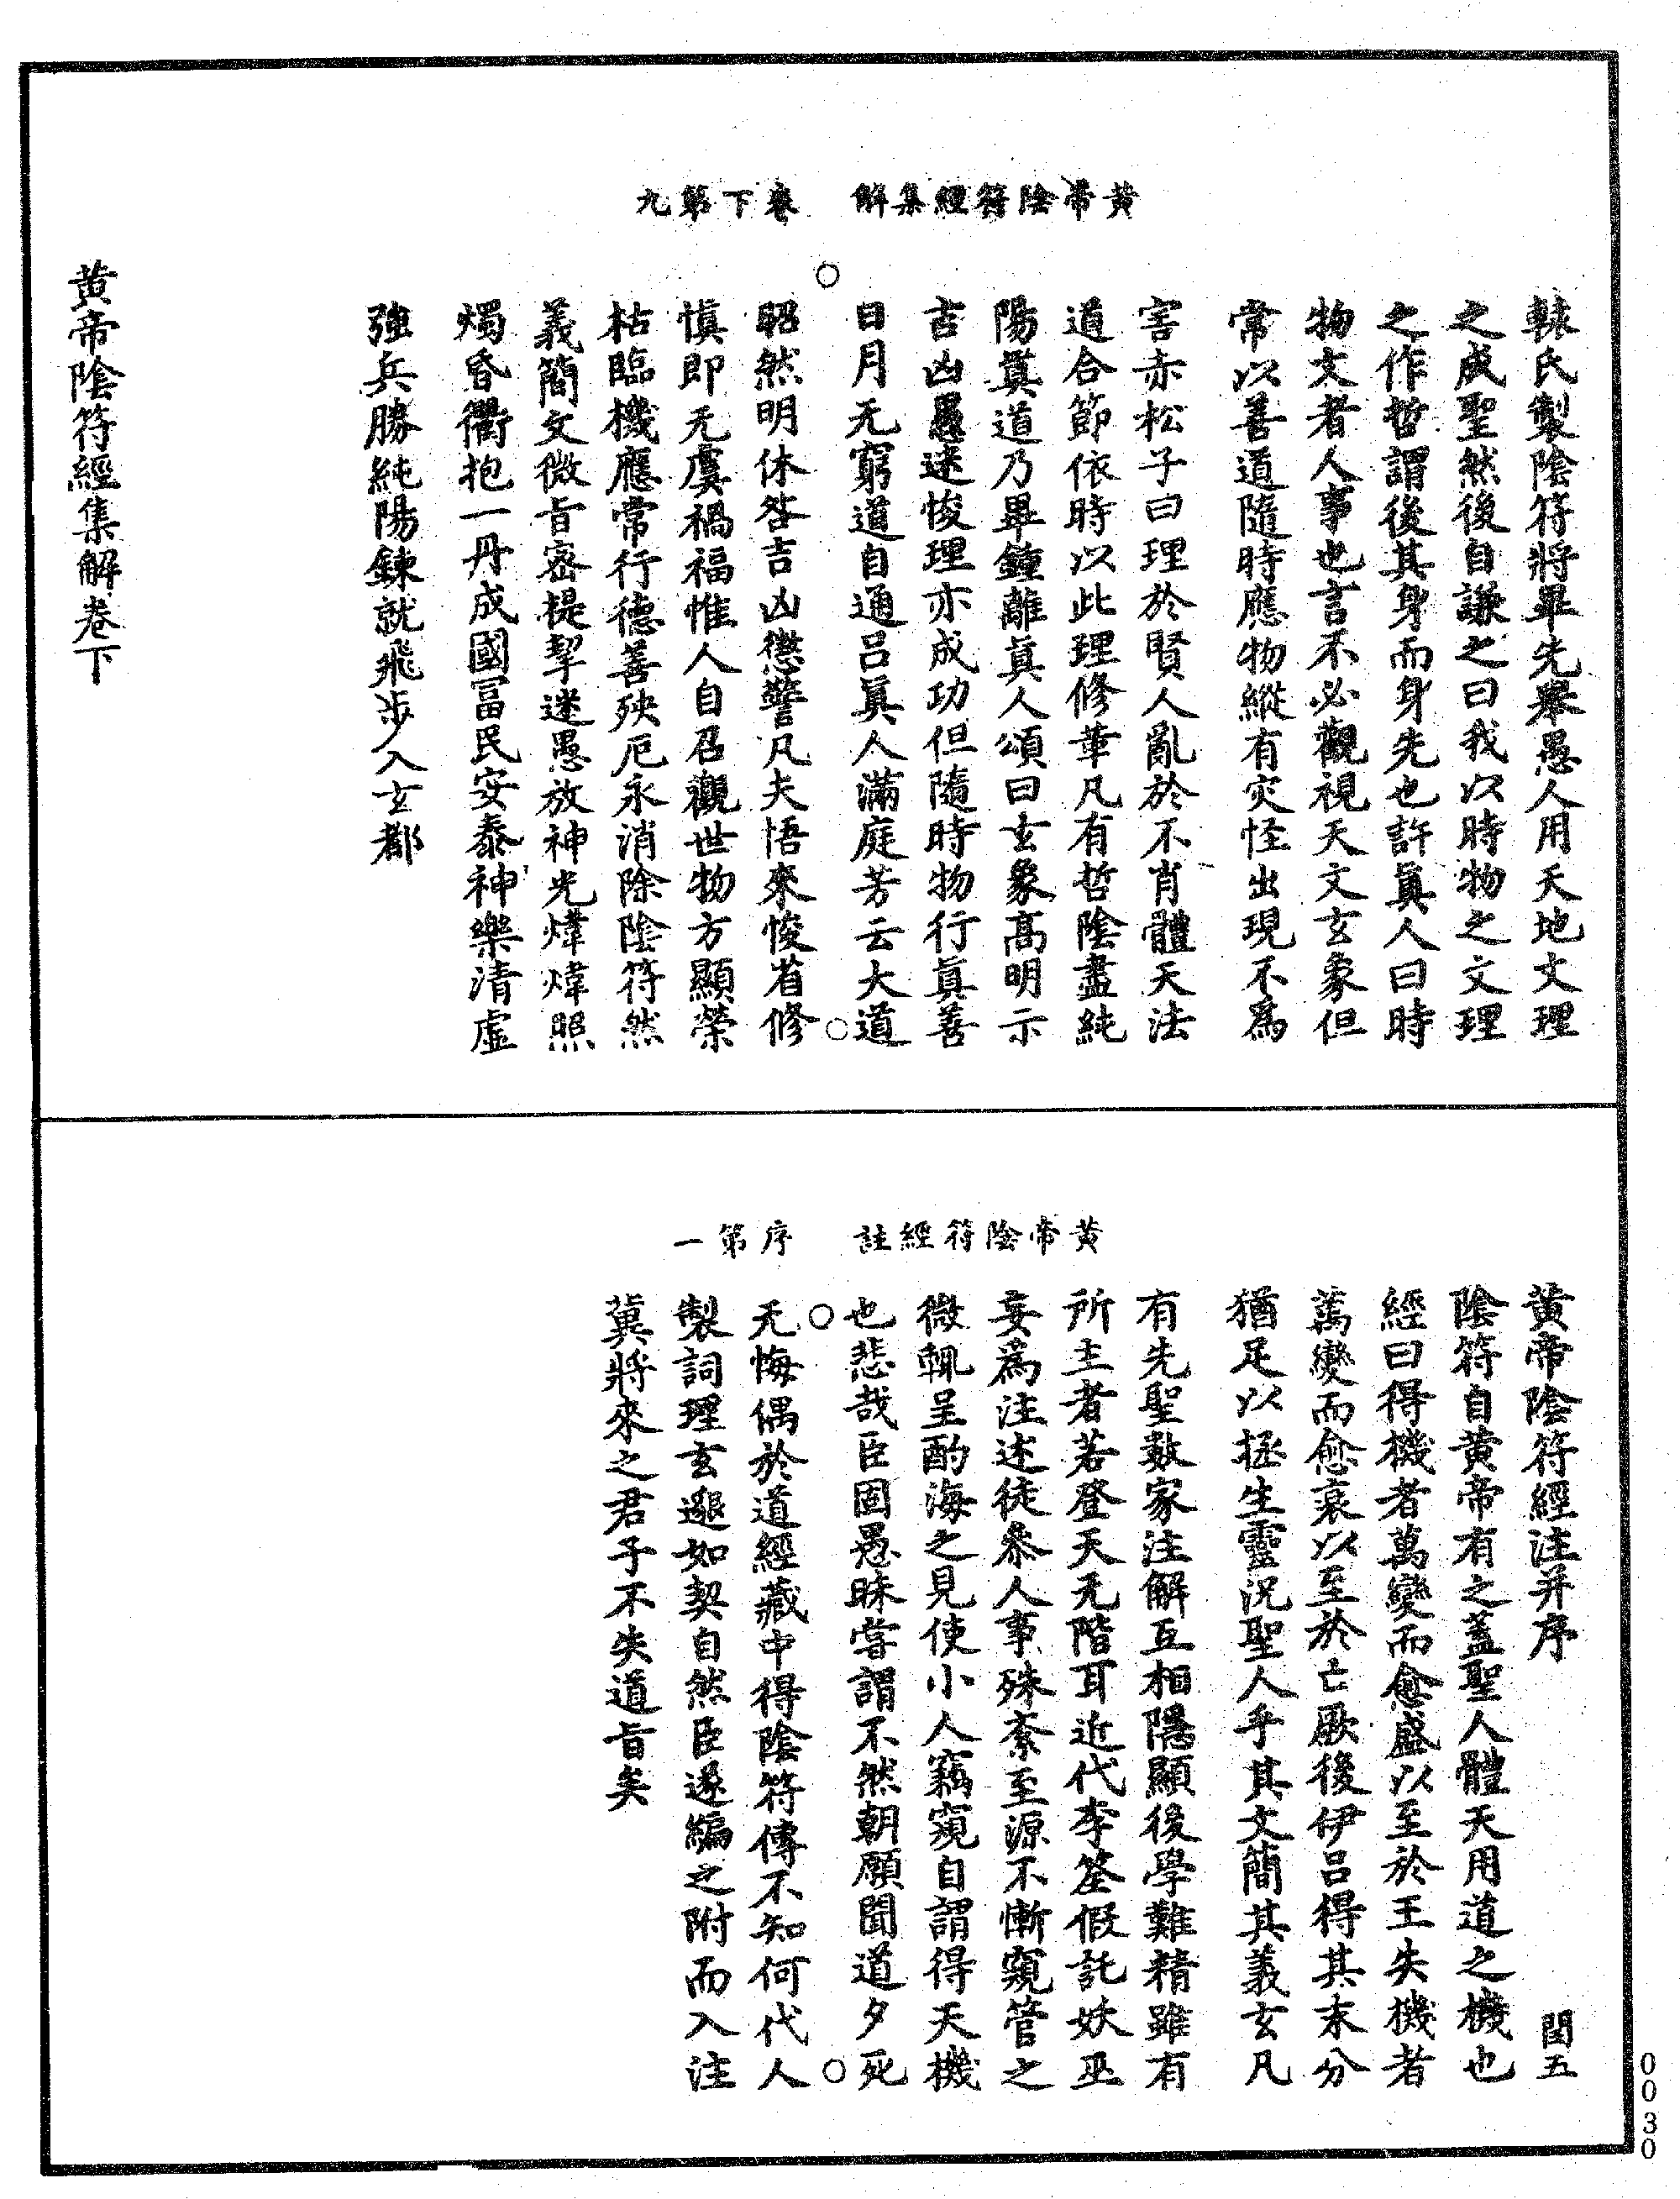 黃帝陰符經集解　卷下第九
轅氏製陰符將畢先舉愚人用天地文理
之成聖然後自謙之曰我以時物之文理
之作哲謂後其身而身先也許眞人曰時
物文者人事也言不必觀視天文玄象但
常以善道隨時應物縱有灾怪出現不爲
害赤松子曰理於賢人亂於不肖體天法
道合節依時以此理修葦凡有哲陰盡純
陽眞道乃畢鐘離眞人頌曰玄象高明示
吉凶愚迷悛理亦成功但隨時物行眞善
日月无窮道自通呂眞人滿庭芳云大道
昭然明休咎吉凶懲警凡夫悟來悛省修
愼即无虞禍福惟人自召觀世物方顯榮
枯臨機應常行德善殃厄永消除陰符然
義簡文微旨密提挈迷愚放神光煒煒照
燭昏衢抱一丹成國富民安泰神樂清虛
強兵勝純陽鍊就飛步入玄都
黃帝陰符經集解卷下
黃帝陰符經註　序第一
黃帝陰符經注并序　閏五
陰符自黃帝有之蓋聖人體天用道之機也
經曰得機者萬變而愈盛以至於王失機者
萬變而愈衰以至於亡厥後伊呂得其末分
猶足以拯生靈況聖人乎其文簡其義玄凡
有先聖數家注解互相隱顯後學難精雖有
所主者若登天无階耳近代李筌假託妖巫
妄爲注述徒參人事殊紊至源不慚窺管之
微輒呈酌海之見使小人竊窺自謂得天機
也悲哉臣固愚昧嘗謂不然朝願聞道夕死
无悔偶於道經藏中得陰符傳不知何代人
製詞理玄邈如契自然臣遂編之附而入注
冀將來之君子不失道旨矣
0030